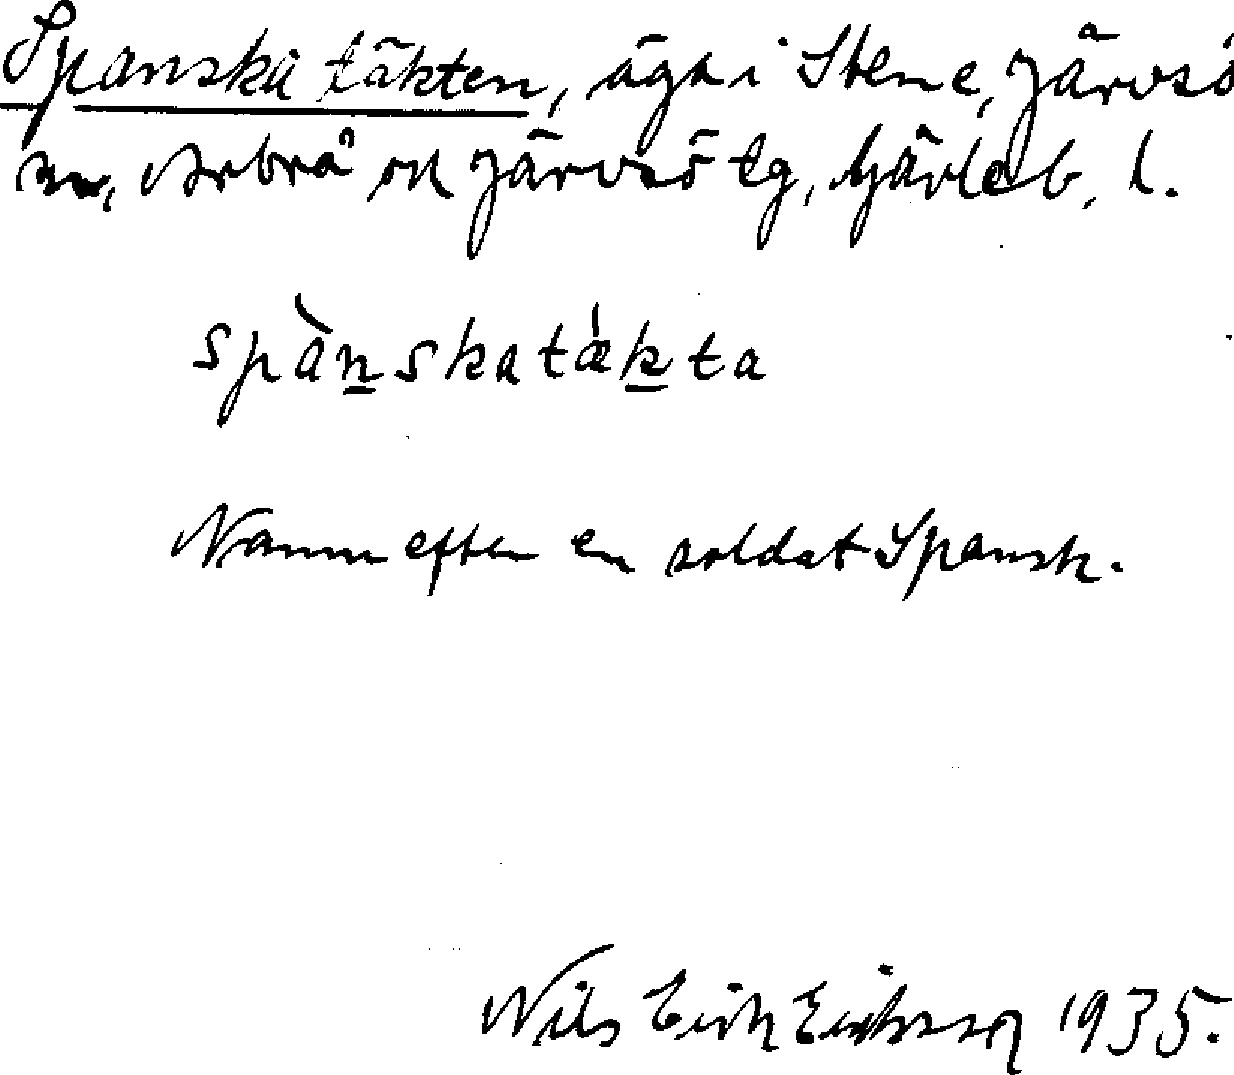 Spanska täkten, äga i Stene, Järvsö
sn, Arbrå ok Järvsö tg, Gävleb. l.
spànskatǽkta
Namn efter en soldat Spansk.
Nils Erik Eriksson 1935.